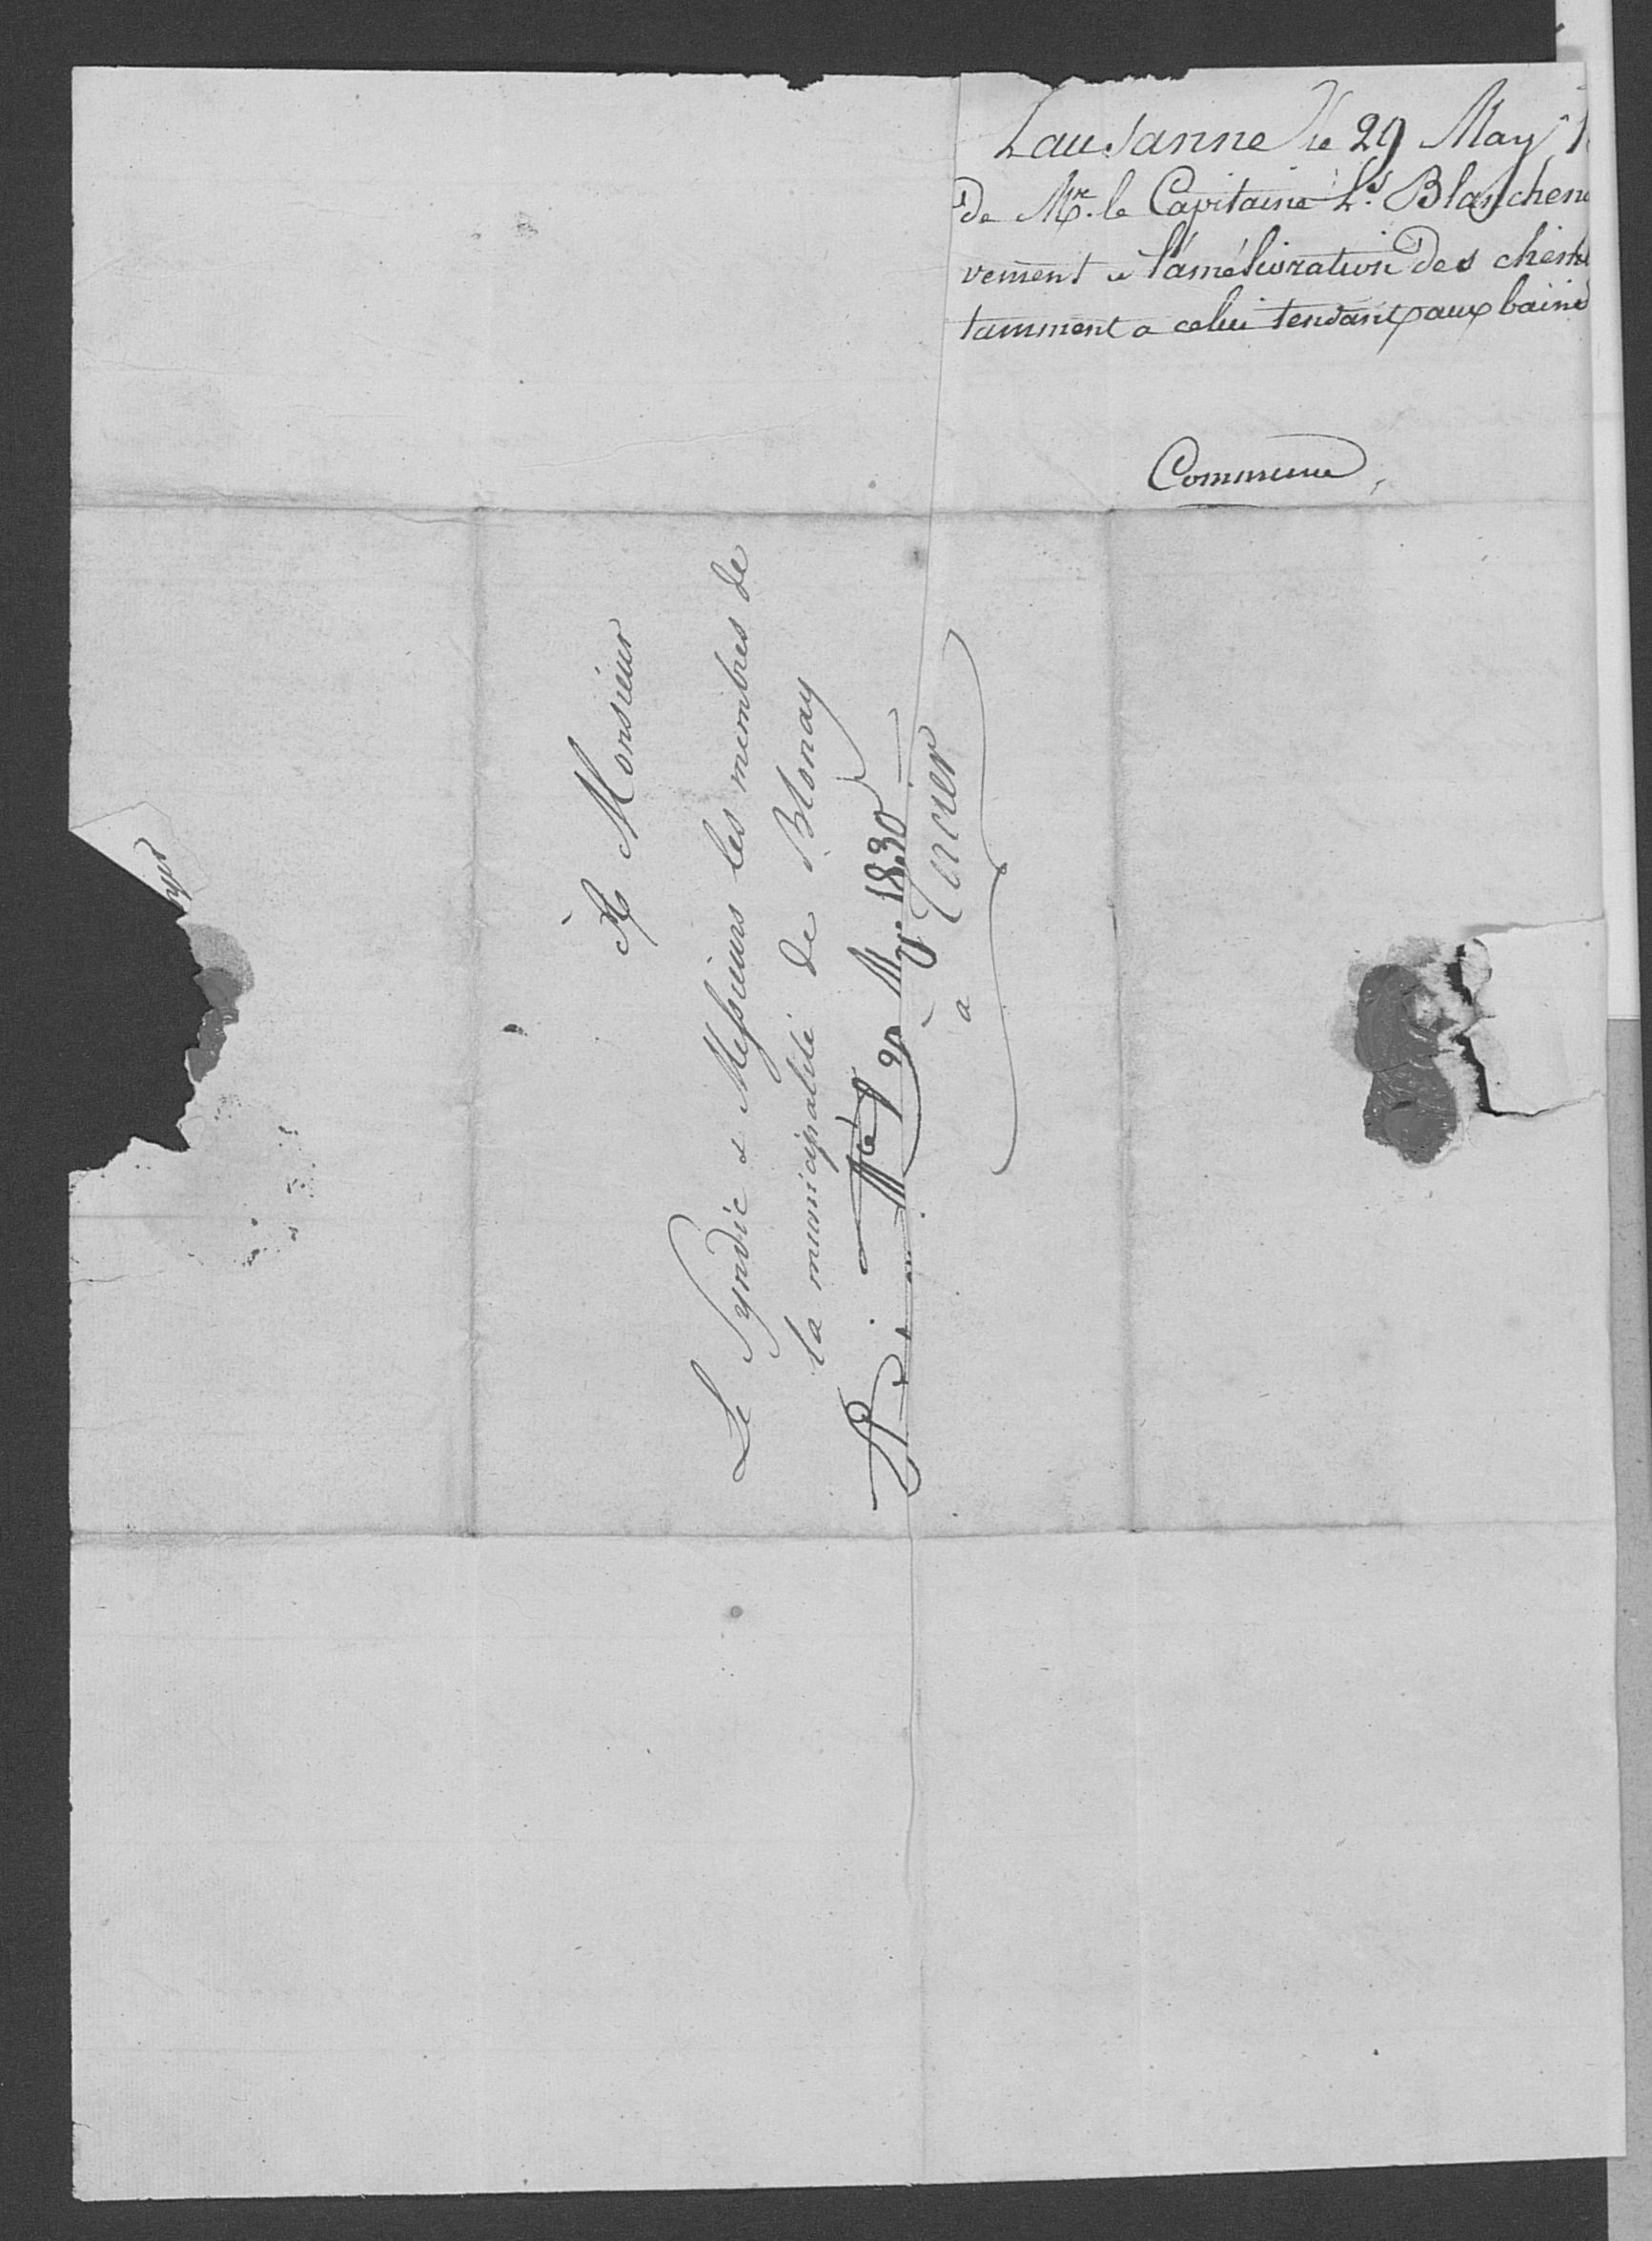 Lausanne le 29 May 1
De Mr. le Capitaine Ls. Blanchen
vement a l'amélioration des chem
tamment a celui tendant aux bains
Commune
À Monsieur
Le Syndic & Messieurs les membres de
la municipalité de Blonay
May 1830
à Tercier